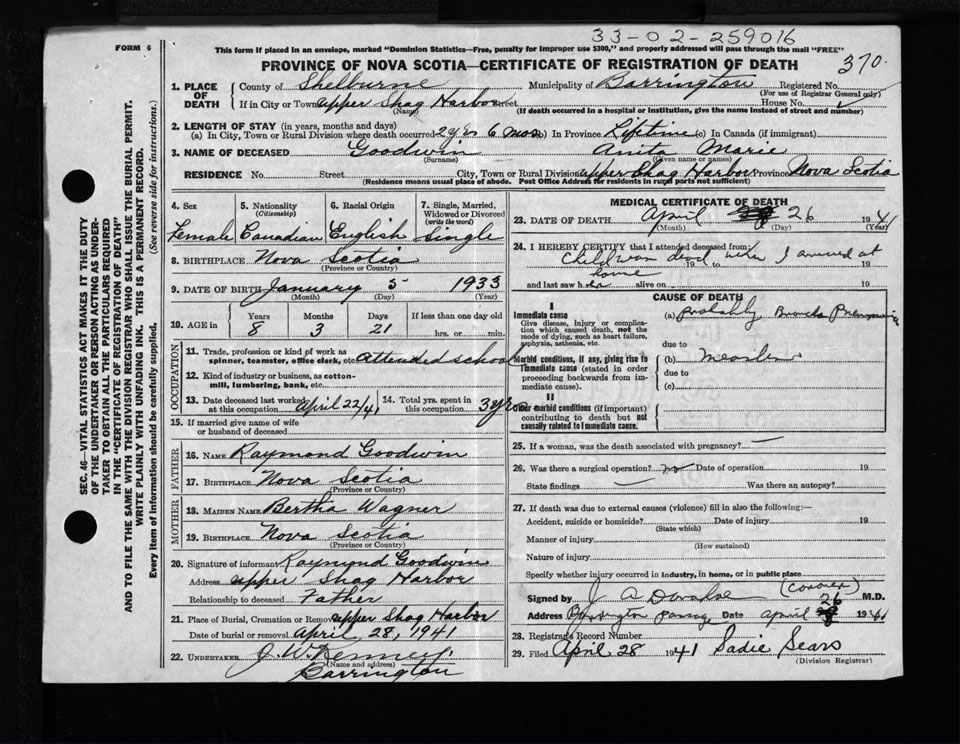 33-02-259016
FORM 6
This form if placed in an envelope, marked "Dominion Statistics—Free, penalty for improper use $300," and properly addressed will pass through the mail "FREE"
PROVINCE OF NOVA SCOTIA—CERTIFICATE OF REGISTRATION OF DEATH
370
1. PLACE OF DEATH
County of Shelburne Municipality of Barrington Registered No.
(For use of Registrar General only)
If in City or Town Upper Shag Harbor Street House No.
(Name) (If death occurred in a hospital or institution, give the name instead of street and number)
2. LENGTH OF STAY (in years, months and days)
(a) In City, Town or Rural Division where death occurred 2 yrs 6 mos (b) In Province Lifetime (c) In Canada (if immigrant)
3. NAME OF DECEASED Goodwin Anita Marie
(Surname) (Given name or names)
RESIDENCE No. Street City, Town or Rural Division Upper Shag Harbor Province Nova Scotia
(Residence means usual place of abode. Post Office Address for residents in rural parts not sufficient)
4. Sex 5. Nationality (Citizenship) 6. Racial Origin 7. Single, Married, Widowed or Divorced (write the word)
Female Canadian English Single
8. BIRTHPLACE Nova Scotia
(Province or Country)
9. DATE OF BIRTH January 5 1933
(Month) (Day) (Year)
10. AGE in Years Months Days If less than one day old
8 3 21 hrs. or min.
OCCUPATION
11. Trade, profession or kind of work as spinner, teamster, office clerk, etc. attended school
12. Kind of industry or business, as cotton-mill, lumbering, bank, etc.
13. Date deceased last worked at this occupation April 22/41 14. Total yrs. spent in this occupation 3 yrs
15. If married give name of wife or husband of deceased
FATHER
16. NAME Raymond Goodwin
17. BIRTHPLACE Nova Scotia
(Province or Country)
MOTHER
18. MAIDEN NAME Bertha Wagner
19. BIRTHPLACE Nova Scotia
(Province or Country)
20. Signature of informant Raymond Goodwin
Address Upper Shag Harbor
Relationship to deceased Father
21. Place of Burial, Cremation or Removal Upper Shag Harbor
Date of burial or removal April 28, 1941
22. UNDERTAKER J. W. Kenney
(Name and address)
Barrington
MEDICAL CERTIFICATE OF DEATH
23. DATE OF DEATH April 26 1941
(Month) (Day) (Year)
24. I HEREBY CERTIFY that I attended deceased from:
Child was dead when I arrived at
19 to 19
home
and last saw h alive on 19
CAUSE OF DEATH
I
Immediate cause (a) probably Broncho Pneumonia
Give disease, injury or complication which caused death, not the mode of dying, such as heart failure, asphyxia, asthenia, etc.
due to
Morbid conditions, if any, giving rise to immediate cause (stated in order proceeding backwards from immediate cause). (b) measles
due to
(c)
II
Other morbid conditions (if important) contributing to death but not causally related to immediate cause.
25. If a woman, was the death associated with pregnancy? —
26. Was there a surgical operation? no Date of operation 19
State findings — Was there an autopsy?
27. If death was due to external causes (violence) fill in also the following:—
Accident, suicide or homicide? Date of injury 19
(State which)
Manner of injury
(How sustained)
Nature of injury
Specify whether injury occurred in industry, in home, or in public place
(Coroner)
Signed by J A Donahoe M.D.
26
Address Barrington Passage Date April 1941
28. Registrar's Record Number
29. Filed April 28 1941 Sadie Sears
(Division Registrar)
SEC. 46—VITAL STATISTICS ACT MAKES IT THE DUTY
OF THE UNDERTAKER OR PERSON ACTING AS UNDER-
TAKER TO OBTAIN ALL THE PARTICULARS REQUIRED
IN THE "CERTIFICATE OF REGISTRATION OF DEATH"
AND TO FILE THE SAME WITH THE DIVISION REGISTRAR WHO SHALL ISSUE THE BURIAL PERMIT.
WRITE PLAINLY WITH UNFADING INK. THIS IS A PERMANENT RECORD.
Every item of information should be carefully supplied. (See reverse side for instructions.)